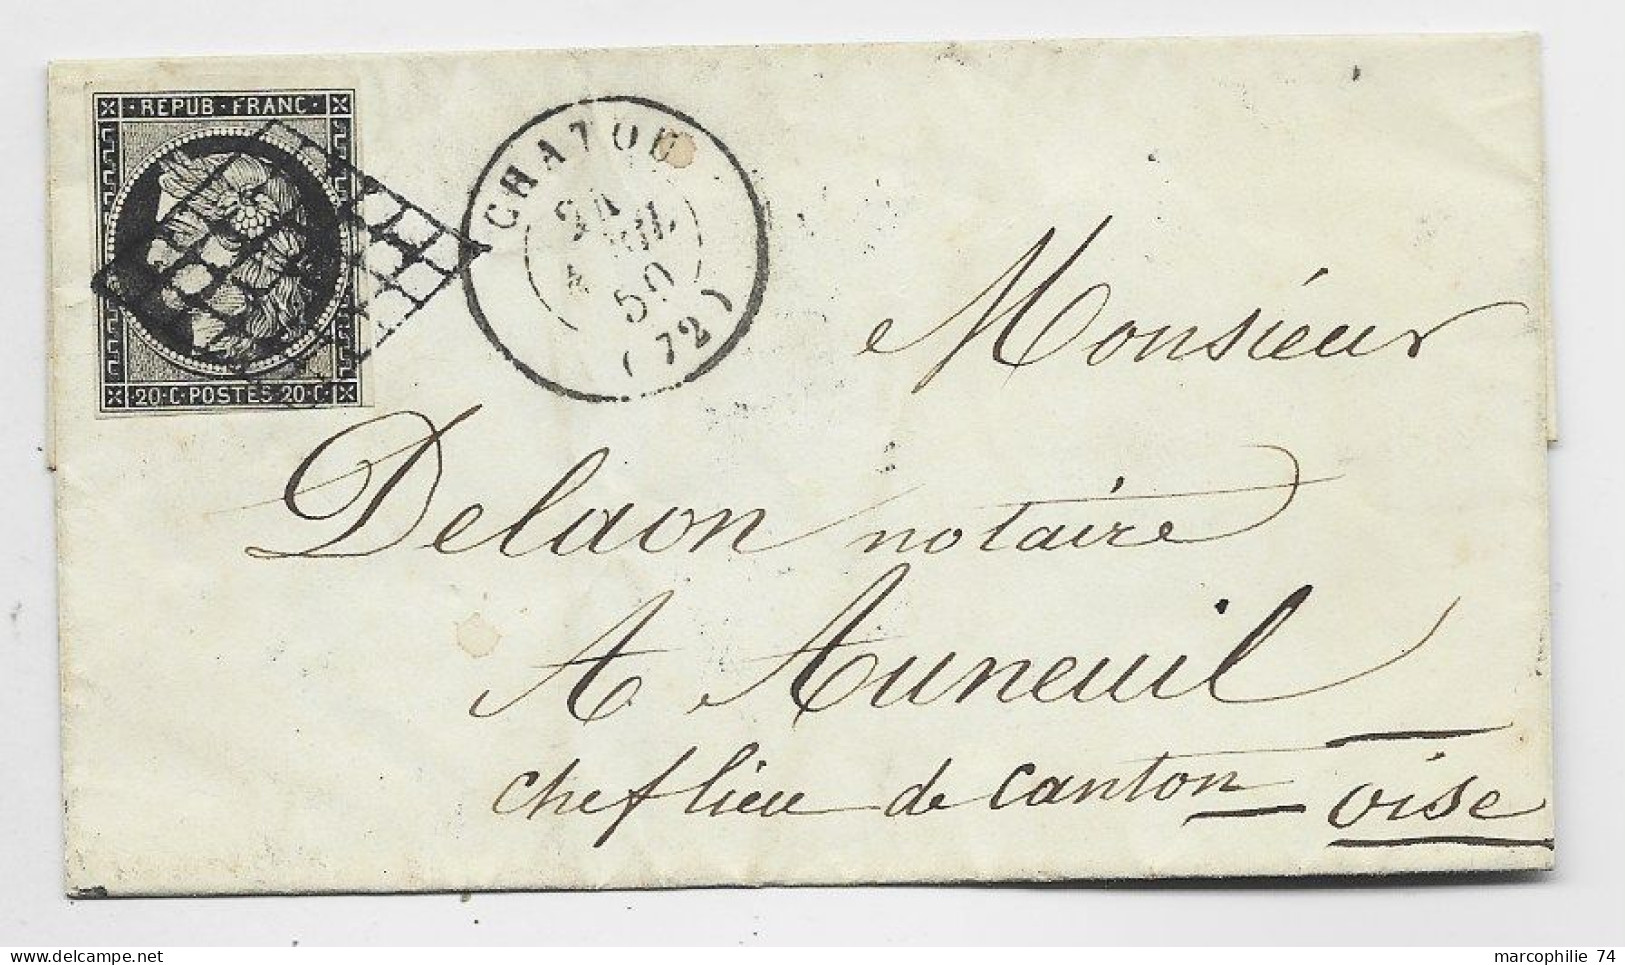 REPUB · FRANC ·
20 · C · POSTES · 20 · C ·
CHATOU
24
AVRIL
50
(72)
Monsieur
Delaon notaire
A Auneuil
chef lieu de canton Oise
marcophilie 74